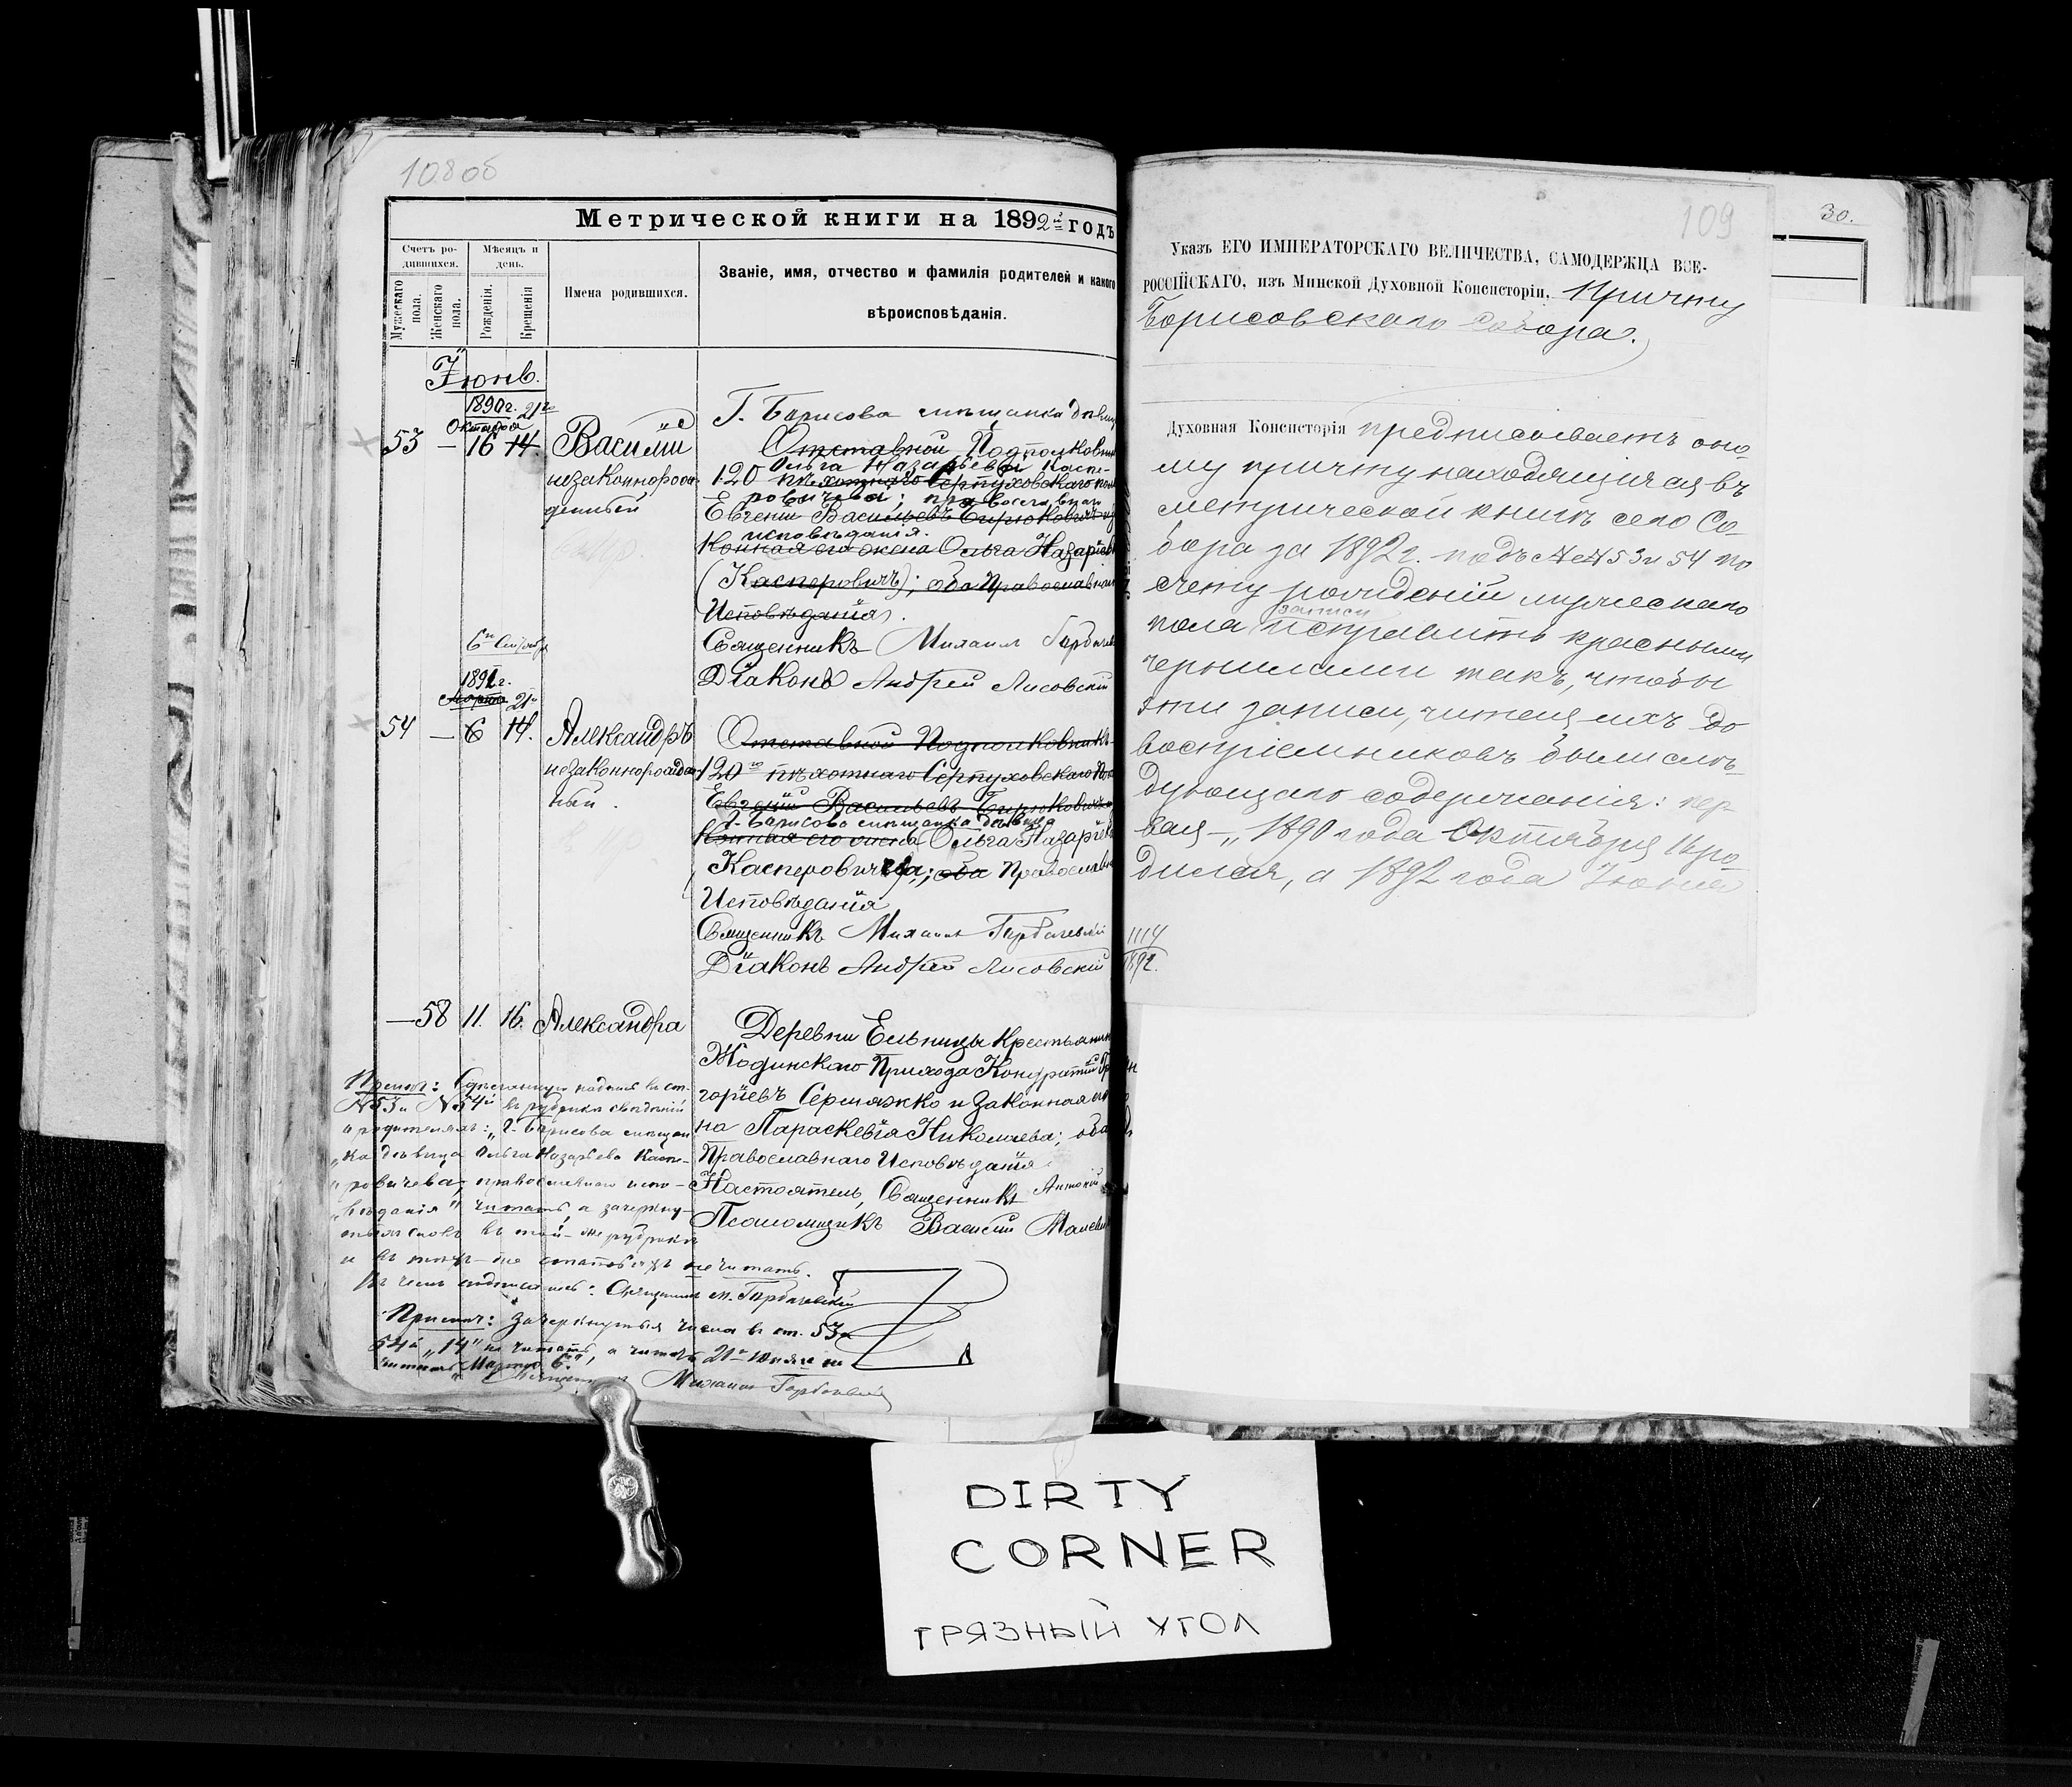 108 об
Метрической книги на 1892й годъ
Счетъ ро-
дившихся.
Мѣсяцъ и
день.
Мужескаго
пола.
Женскаго
пола.
Рожденія.
Крещенія
Имена родившихся.
Званіе, имя, отчество и фамилія родителей и какого
вѣроисповѣданія.
Іюнь.
1890 г. 21го
Октября
53 — 16 14. Василій
незаконнорож-
денный
Г. Борисова мѣщанка дѣвица
Отставной Подполковникъ
Ольга Назарьева Каспе-
120 пѣхотнаго Серпуховскаго полка
ровичева; православнаго
Евгеній Васильевъ Бирюковичъ
исповѣданія.
Конная его жена Ольга Назаріева
(Касперовичъ); оба Православнаго
Исповѣданія.
Священникъ Михаилъ Горбачевскій
Діаконъ Андрей Лисовскій
1891 г.
Марта 21го
54 — 6 14. Александръ
незаконнорожден-
ный.
Отставной Подполковникъ
120го пѣхотнаго Серпуховскаго Полка
Евгеній Васильевъ Бирюковичъ
г. Борисова мѣщанка дѣвица
Конная его жена Ольга Назаріева
Касперовичева; оба Православнаго
Исповѣданія
Священникъ Михаилъ Горбачевскій
Діаконъ Андрей Лисовскій
— 58 11. 16. Александра
Деревни Ельницы Крестьянинъ
Жодинскаго Прихода Кондратій Гри-
горіевъ Сермяжко и Законная его же-
на Параскевія Николаева; оба
Православнаго Исповѣданія
Настоятель, Священникъ Антоній
Псаломщикъ Василій
Примѣч: Сдѣланную надпись въ ст.
№ 53 и № 54й въ рубрикѣ свѣдѣній
о родителяхъ: „г. Борисова мѣщан
„ка дѣвица Ольга Назарьева Каспе-
„ровичева, православнаго испо-
„вѣданія" читать, а зачеркну-
тыя слова въ той-же рубрикѣ
и въ тѣхъ-же статьяхъ не читать.
Въ чемъ подписались: Священникъ М. Горбачевскій
Примѣч: Зачеркнутыя числа въ ст. 53 и
54й „14" не читать, а читать 21го Іюня
читать Марта 6."
Священникъ Михаилъ Горбачевскій
109
30.
Указъ ЕГО ИМПЕРАТОРСКАГО ВЕЛИЧЕСТВА, САМОДЕРЖЦА ВСЕ-
РОССІЙСКАГО, изъ Минской Духовной Консисторіи, Причту
Борисовскаго Собора.
Духовная Консисторія предписываетъ оно-
му причту находящіяся въ
метрической книгѣ сего Со-
бора за 1892 г. подъ №№ 53 и 54 по
счету рожденій мужескаго
записи
пола исправить красными
чернилами такъ, чтобы
эти записи, читая ихъ до
воспріемниковъ были слѣ-
дующаго содержанія: пер-
вая — „1890 года Октября 16 ро-
дился, а 1892 года Іюня
1114
1892.
DIRTY
CORNER
ГРЯЗНЫЙ УГОЛ